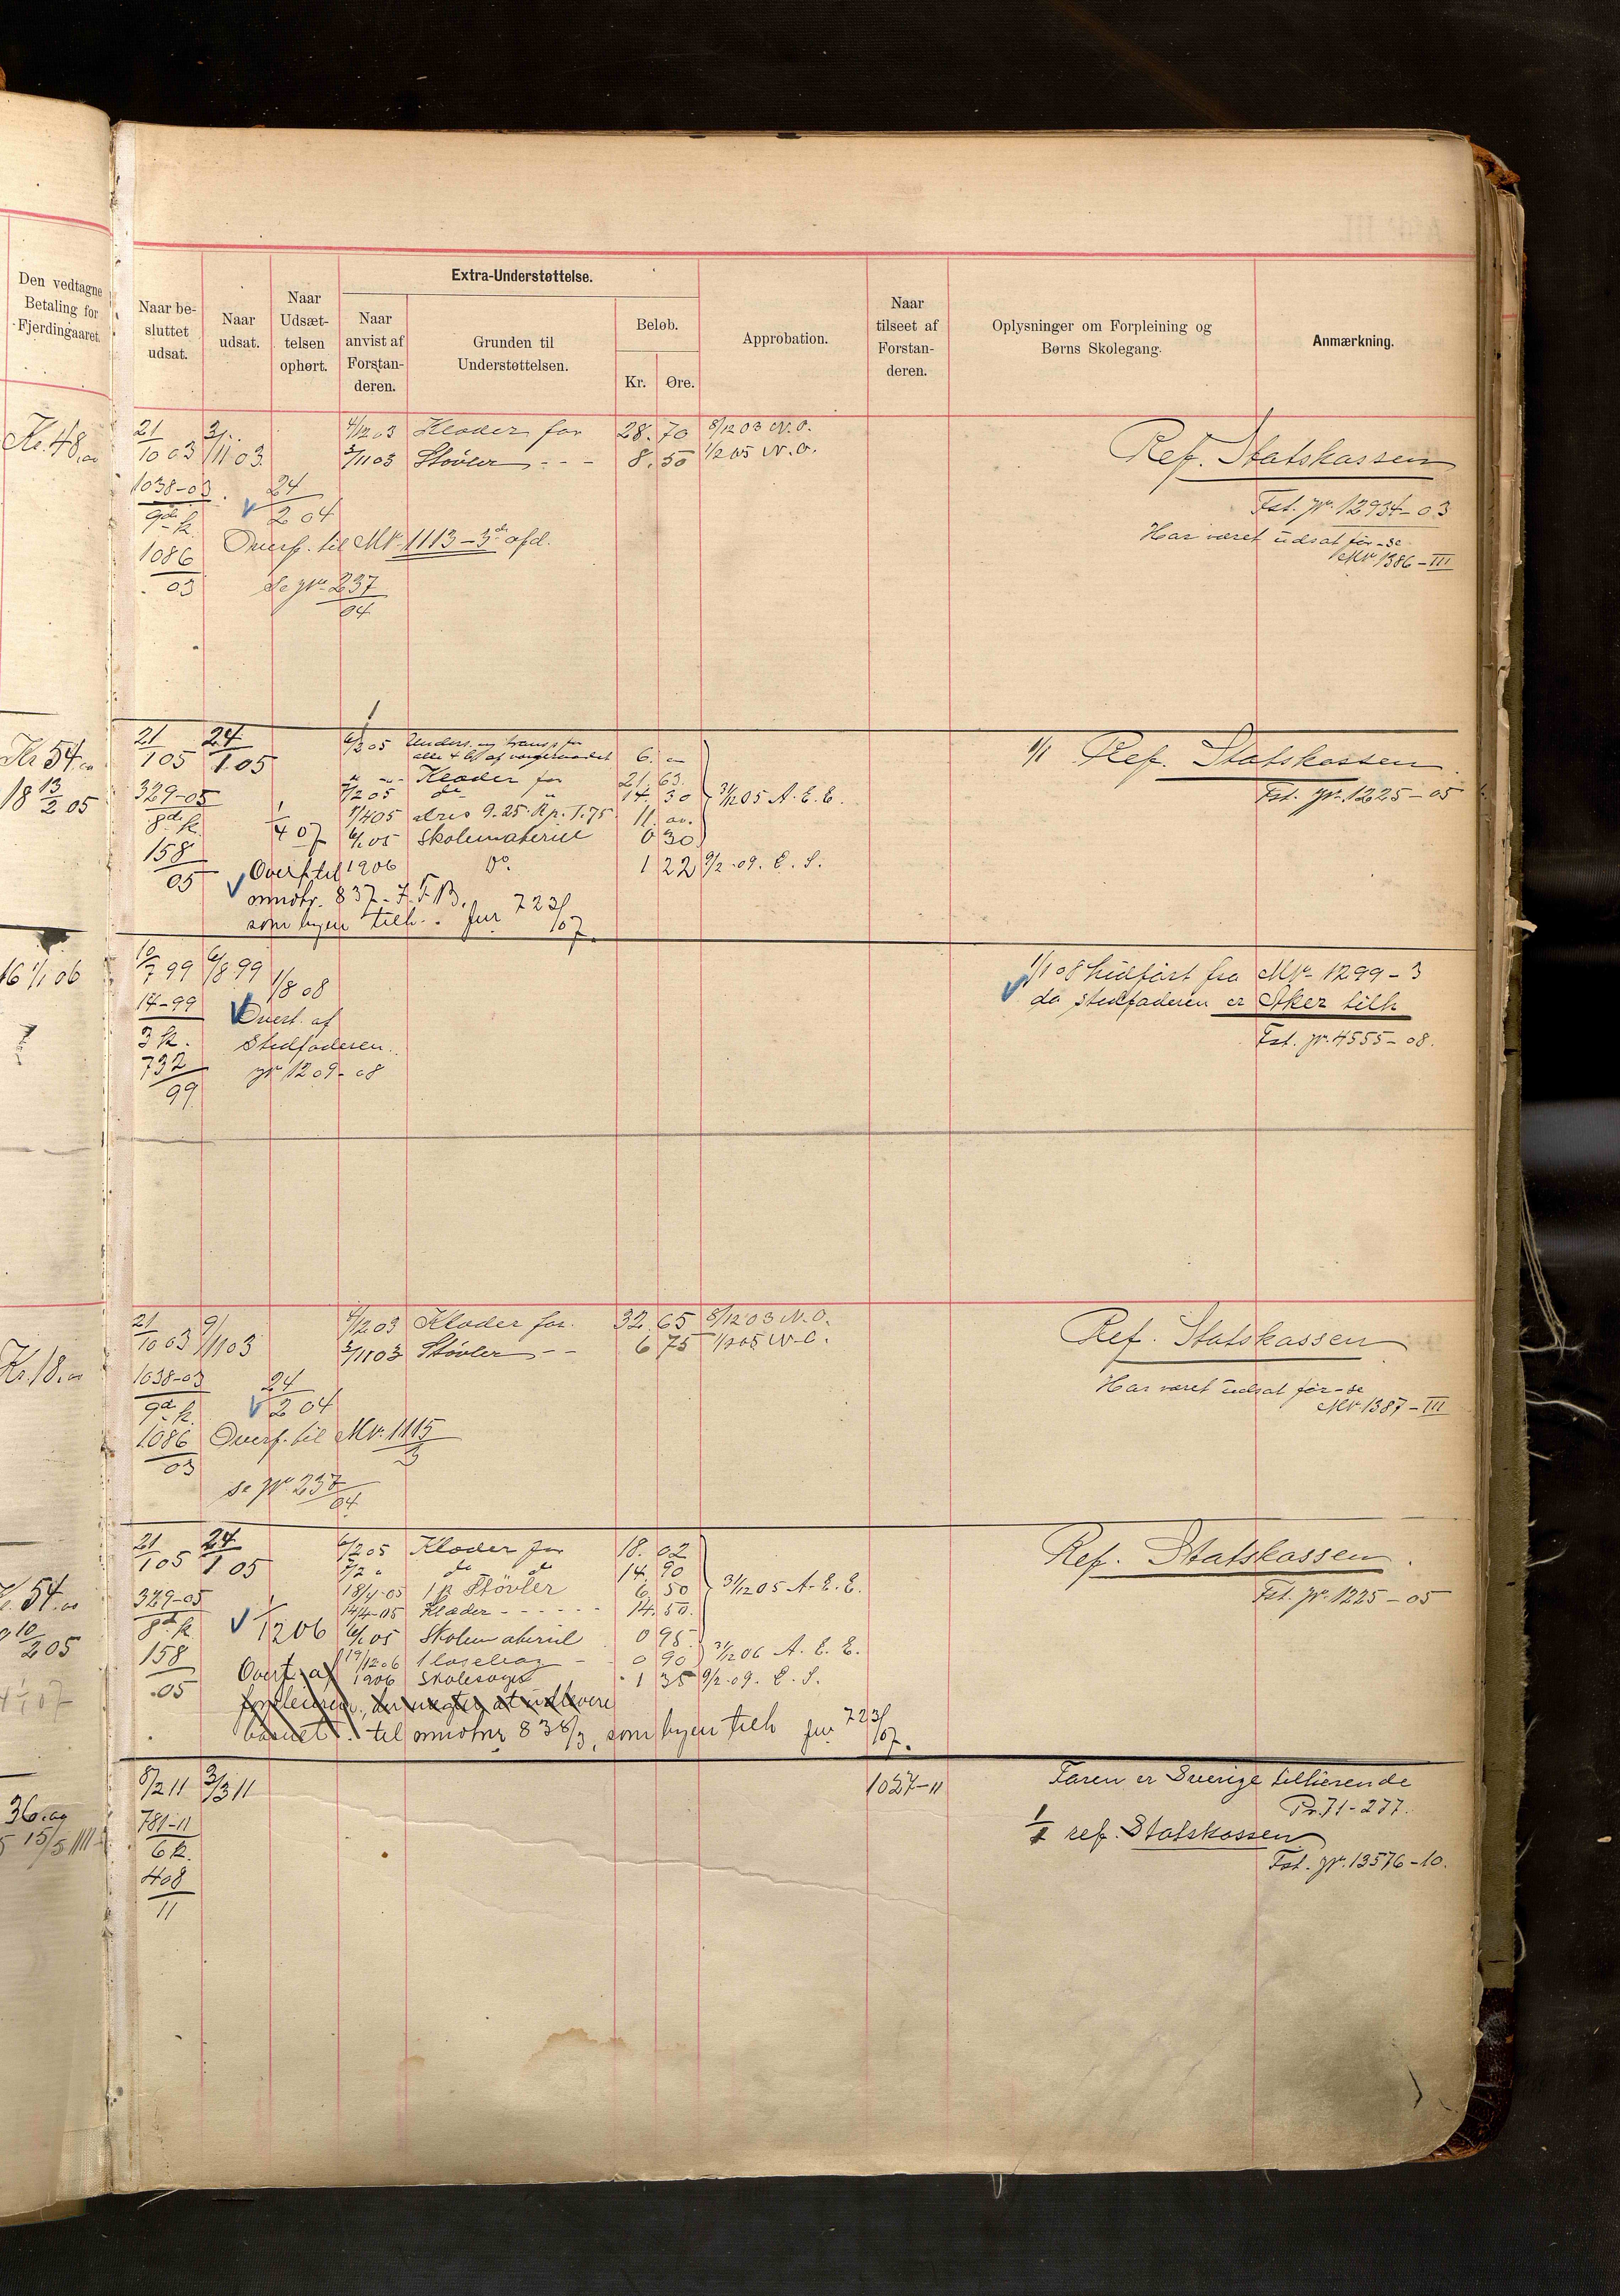 Den vedtagne
Betaling for
Fjerdingaaret.
Naar be-
sluttet
udsat.
Naar
udsat.
Naar
Udsæt-
telsen
ophørt.
Extra-Understøttelse.
Naar
anvist af
Forstan-
deren.
Grunden til
Understøttelsen.
Beløb.
Kr. Øre.
Approbation.
Naar
tilseet af
Forstan-
deren.
Oplysninger om Forpleining og
Børns Skolegang.
Anmærkning.
Kr. 48.00
21/10 03 3/11 03. 4/12 03 Klæder for 28.70 8/12 03 N.O.
3/11 03 Støvler - - - 8.50 1/2 05 N.O.
Ref. Statskassen
1038-03
9de k.
1086
03
24/2 04
Overf. til Nr. 1113 - 3de afd.
Se jr. 237
04
Fst. jr. 12934-03
Har været udsat før - se
Nr. 1386-III
Kr 54.00
18 13/2 05
21/1 05 24/1 05 6/2 05 Unders. og transp. for
alle 4 6.
Klæder for 21.63.
7/2 05 do 14.30 31/12 05 A.E.E.
8/4 05 11.00.
6/1 05 Skolemateriel 0 30
1906 Do. 1 22 9/2-09. E.S.
329-05
8de k.
158
05
1/4 07
Overf til
omvdr. 837-
som byen tilh. jur 723/07.
1/1 Ref. Statskassen
Fst. jr. 1225-05
16 1/1 06
10/7 99 6/8 99 1/8 08
14-99
3 k.
732
99
Overt. af
Stedfaderen.
jr 1209-08
1/1 08 hidført fra Nr. 1299-3
da stedfaderen er Aker tilh
Fst. jr. 4555-08.
Kr. 18.00
21/10 03 9/11 03 4/12 03 Klæder for. 32.65 8/12 03 N.O.
3/11 03 Støvler - - 6 75 1/2 05 N.O.
Ref. Statskassen
1038-03
9de k.
1086
03
24/2 04
Overf. til Nr. 1115
3
se jr 237
04
Har været udsat før - se
Nr 1387-III
54.00
10/2 05
21/1 05 24/1 05 6/2 05 Klæder for 18.02
7/2 " do do 14.90
18/4-05 1 p Støvler 6 50 31/12 05 A.E.E.
14/4-05 Klæder - - - - - - 14.50.
6/1 05 Skolemateriel 0 95
19/12 06 0 90 31/12 06 A.E.E.
1906 Skolesager 1 35 9/2-09. E.S.
329-05
8de k.
158
.05
1/1206
Overt. af
forpleieren, der nægter at udlevere
barnet. til omvdnr 838/3, som byen tilh jur 723/07.
Ref. Statskassen.
Fst. jr. 1225-05
36.00
15/5 1111
8/2 11 3/3 11 1027-11
781-11
6 k.
408
11
Faren er Sverige tilhørende
Pr. 71-277.
1/1 ref. Statskassen
Fst. jr. 13576-10.